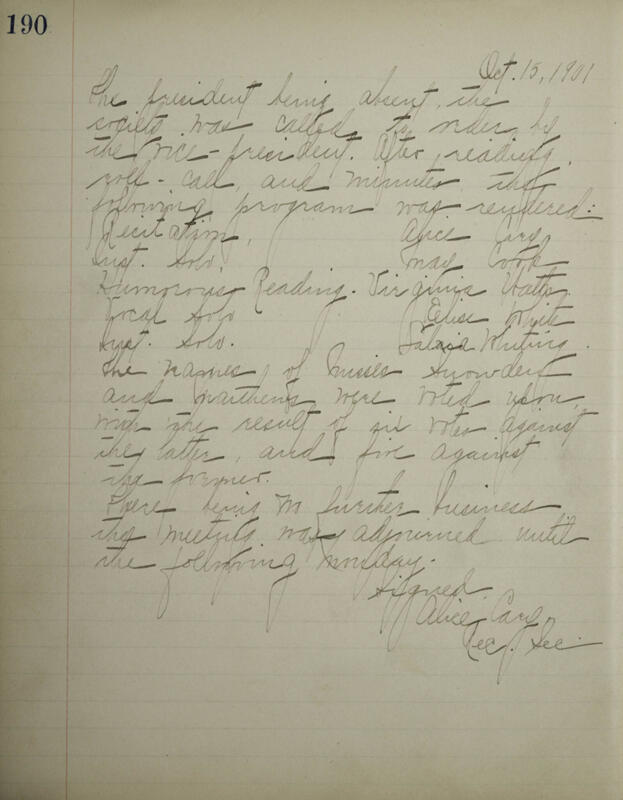 190
Oct. 15, 1901
The president being absent, the
society was called to order by
the vice-president. After reading,
roll-call and minutes the
following program was rendered:
Recitation, Alice Cary
Inst. Solo, May Cook
Humorous Reading. Virginia
Vocal Solo Elise White
Inst. Solo. Whiting.
The names of Misses Snowden
and were voted upon,
with the result of six votes against
the latter, and five against
the former.
There being no further business
the meeting was adjourned until
the following Monday.
Signed
Alice Cary,
Rec. Sec.